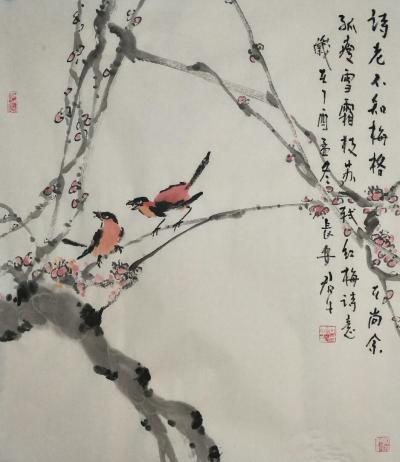 詩老不知梅格在尚余
孤瘦雪霜枝苏轼红梅詩意
歲在丁酉孟冬長安